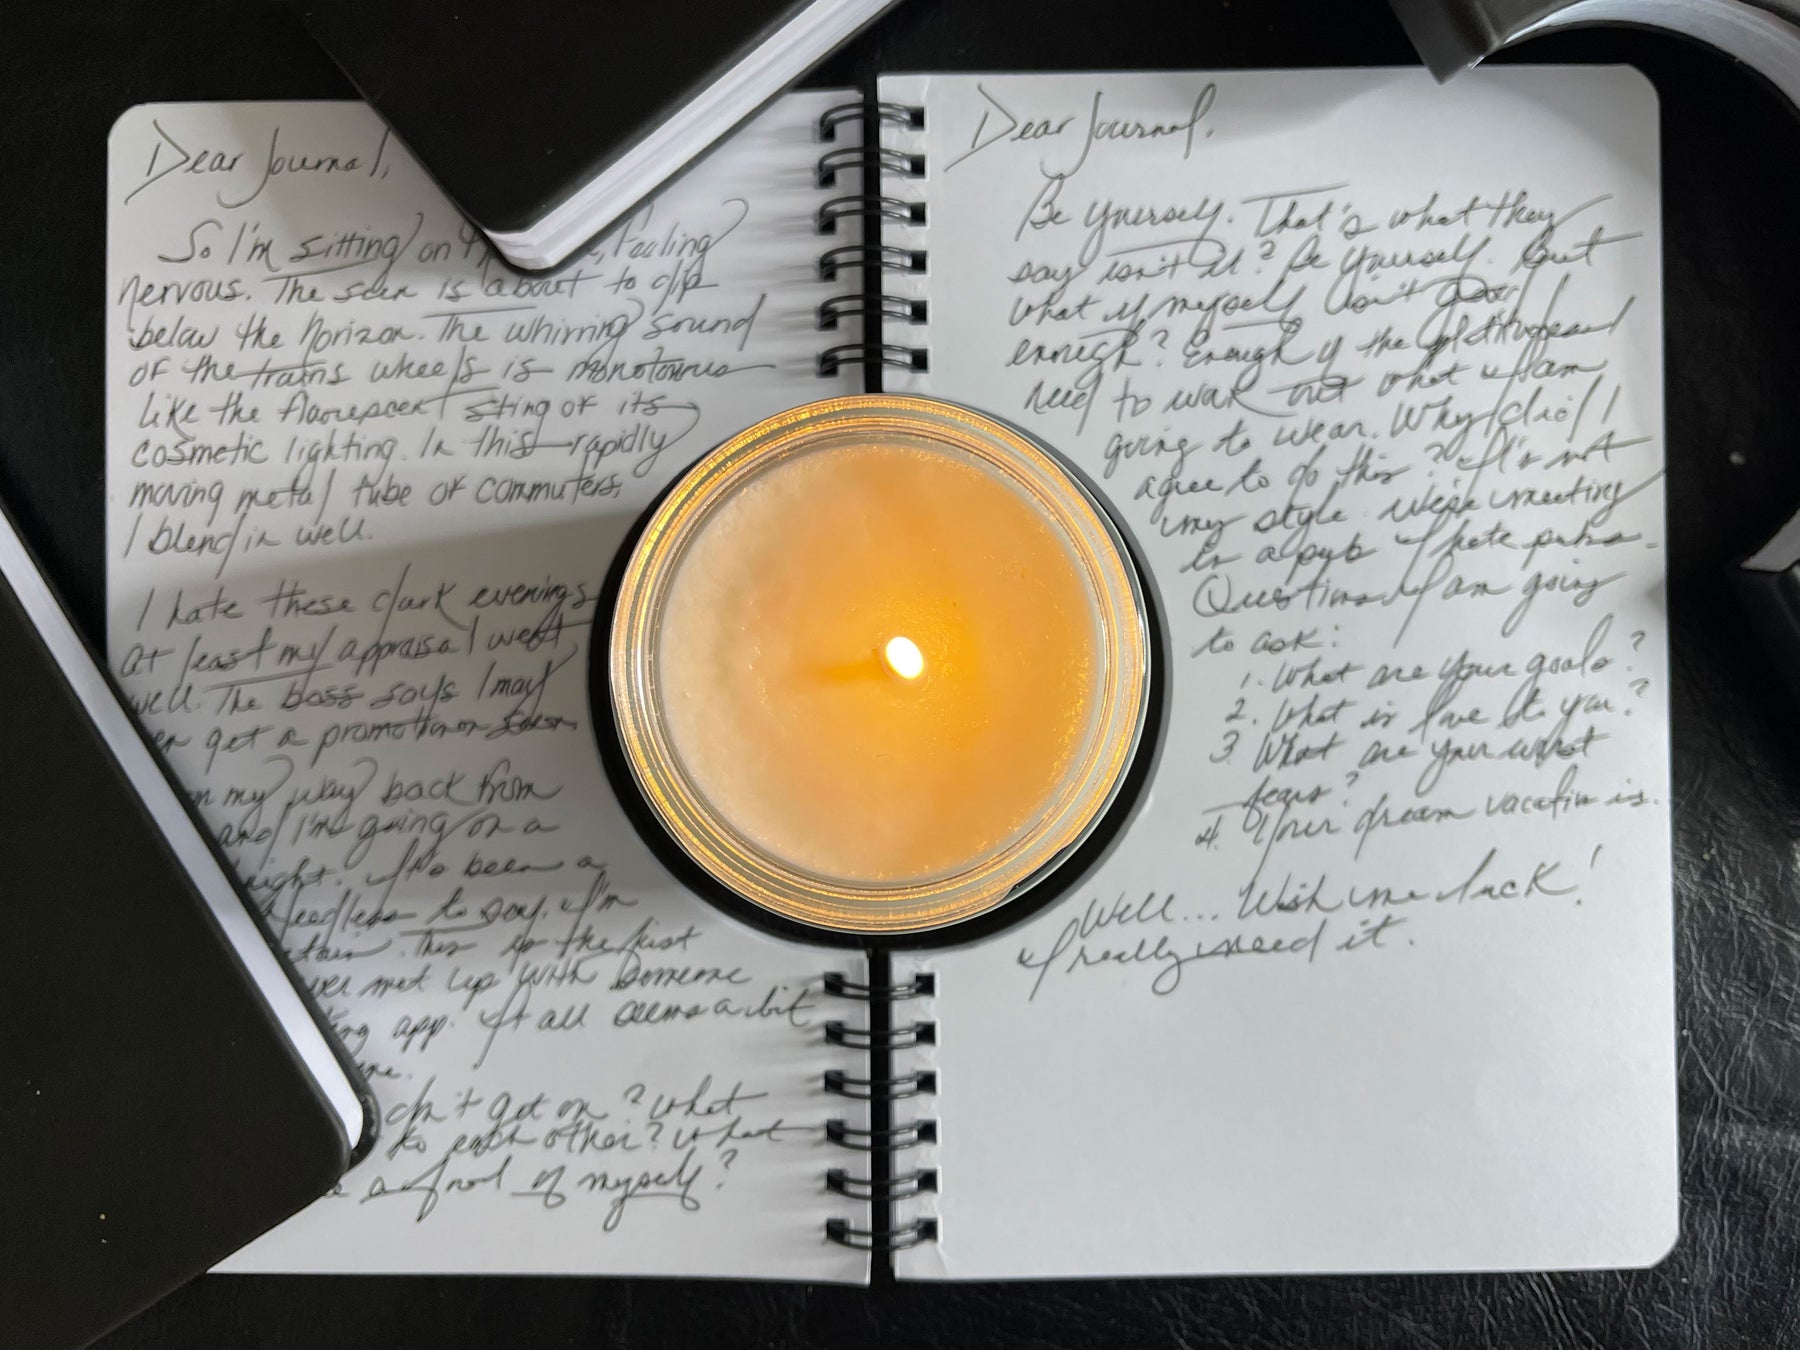 Dear Journal,
So I'm sitting on feeling
nervous. The sun is about to dip
below the horizon. The whirring sound
of the trains wheels is monotonous
like the flourescent sting of its
cosmetic lighting. In this rapidly
moving metal tube of commuters,
I blend in well.
I hate these dark evenings
At least my appraisal went
well. The boss says I may
get a promotion soon
my way back from
and I'm going on a
night. It's been a
Needless to say, I'm
This is the first
met up with someone
app. It all seems a bit
don't get on? What
to each other? What
a fool of myself?
Dear Journal,
Be yourself. That's what they
say isn't it? Be yourself. But
what if myself isn't good
enough? Enough of the
need to work out what I am
going to wear. Why did I
agree to do this? It's not
my style. We're meeting
in a pub I hate pubs.
Questions I am going
to ask:
1. What are your goals?
2. What is love to you?
3 What are your worst
fears?
4. Your dream vacation is.
Well... Wish me luck!
I really need it.